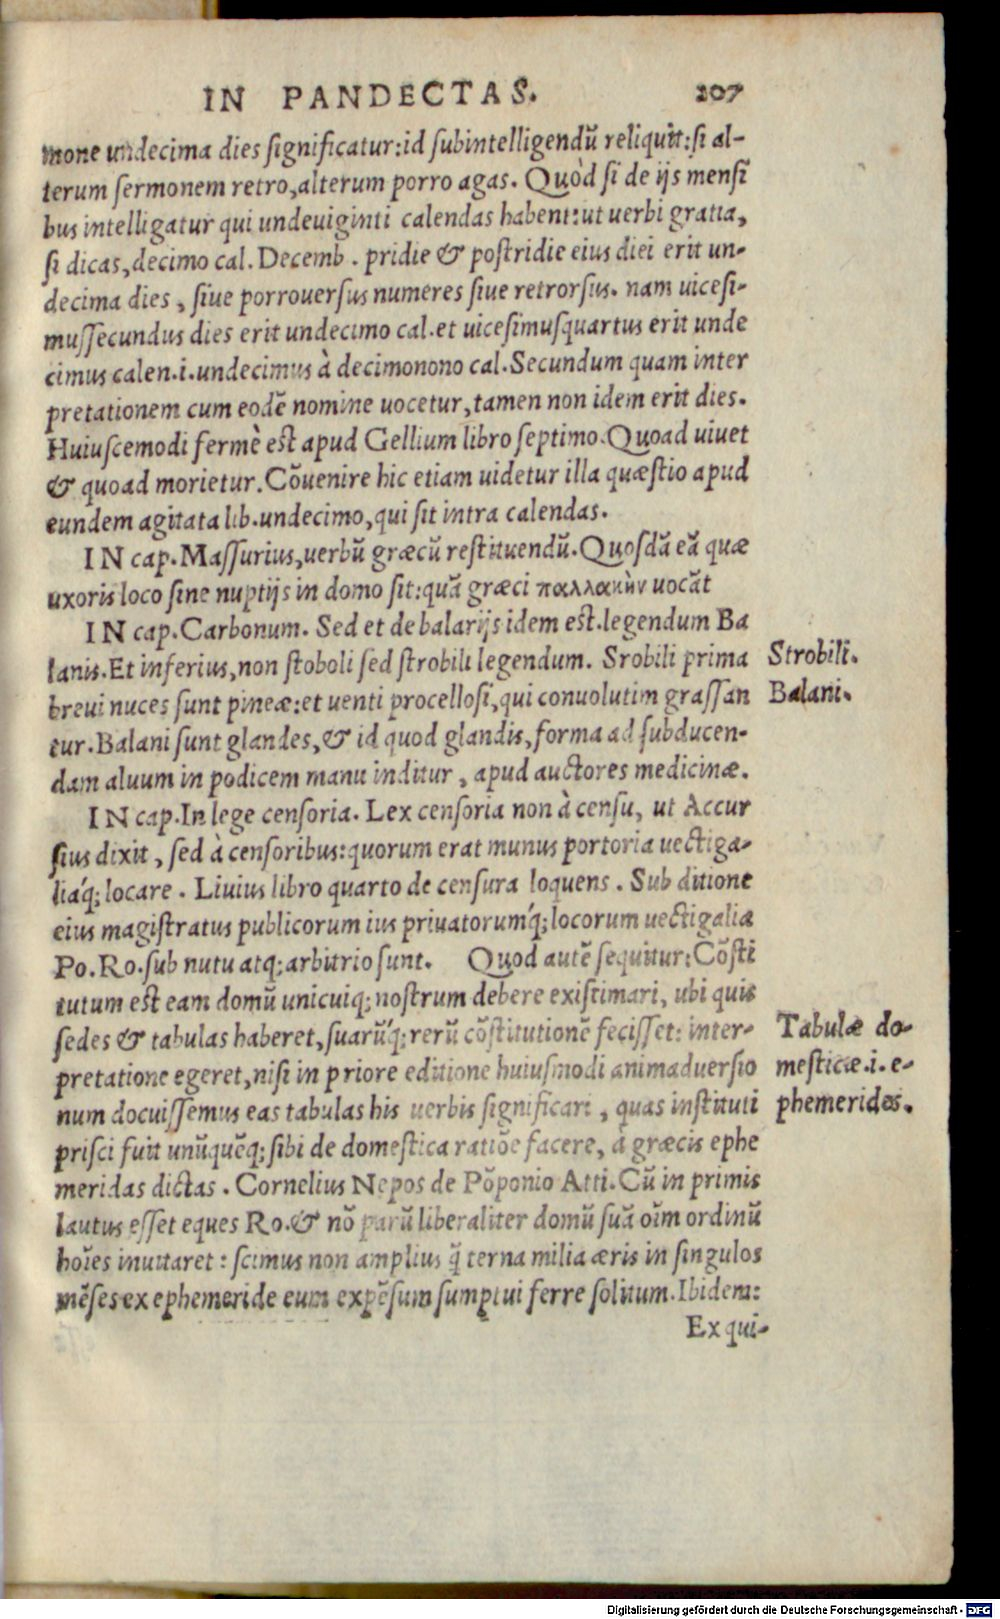 IN PANDECTAS. 207
mone undecima dies significatur: id subintelligendū reliquit: si al-
terum sermonem retro, alterum porro agas. Quòd si de ijs mensi
bus intelligatur qui undeuiginti calendas habent: ut uerbi gratia,
si dicas, decimo cal. Decemb. pridie & postridie eius diei erit un-
decima dies, siue porrouersus numeres siue retrorsus. nam uicesi-
mussecundus dies erit undecimo cal. et uicesimusquartus erit unde
cimus calen. i. undecimus à decimonono cal. Secundum quam inter
pretationem cum eodē nomine uocetur, tamen non idem erit dies.
Huiuscemodi fermè est apud Gellium libro septimo. Quoad uiuet
& quoad morietur. Cōuenire hic etiam uidetur illa quæstio apud
eundem agitata lib. undecimo, qui sit intra calendas.
IN cap. Massurius, uerbū græcū restituendū. Quosdā eā quæ
uxoris loco sine nuptijs in domo sit: quā græci παλλακὴν uocāt
IN cap. Carbonum. Sed et de balarijs idem est. legendum Ba
lanis. Et inferius, non stoboli sed strobili legendum. Srobili prima
breui nuces sunt pineæ: et uenti procellosi, qui conuolutim grassan
tur. Balani sunt glandes, & id quod glandis, forma ad subducen-
dam aluum in podicem manu inditur, apud auctores medicinæ.
Strobili.
Balani.
IN cap. In lege censoria. Lex censoria non à censu, ut Accur
sius dixit, sed à censoribus: quorum erat munus portoria uectiga-
liáq; locare. Liuius libro quarto de censura loquens. Sub ditione
eius magistratus publicorum ius priuatorumq́; locorum uectigalia
Po. Ro. sub nutu atq; arbitrio sunt. Quod autē sequitur: Cōsti
tutum est eam domū unicuiq; nostrum debere existimari, ubi quis
sedes & tabulas haberet, suarūq́; rerū cōstitutionē fecisset: inter-
pretatione egeret, nisi in priore editione huiusmodi animaduersio
num docuissemus eas tabulas his uerbis significari, quas instituti
prisci fuit unūquēq; sibi de domestica ratiōe facere, à græcis ephe
meridas dictas. Cornelius Nepos de Pōponio Atti. Cū in primis
lautus esset eques Ro. & nō parū liberaliter domū suā oīm ordinū
hoīes inuitaret: scimus non amplius q̄ terna milia æris in singulos
mēses ex ephemeride eum expēsum sumptui ferre solitum. Ibidem:
Tabulæ do-
mesticæ. i. e-
phemerides.
Ex qui-
Digitalisierung gefördert durch die Deutsche Forschungsgemeinschaft - DFG